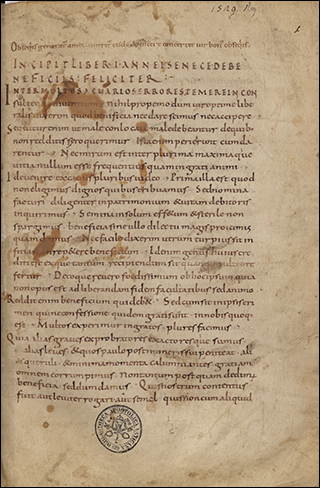 1529
1
INCIPIT LIBER I ANNEI SENECE DEBE
NEFICIIS: FELICITER
INTER MULTOS AC UARIOS ERRORES TEMERE IN CON
sulteque uiuentium nihil propemodum uir optime libe
ralis dixerim quod beneficia nec dare scimus nec accipere
Sequitur enim ut male conlocata male debeantur dequib;
non redditis sero querimur Ista enim perierunt cum da
rentur Nec mirum est inter plurima maximaque
uitia nullum esse frequentius quam ingrati animi
Id euenire ex causis pluribus uideo Prima illa est quod
non eligimus dignos quibus tribuamus Sed nomina
facturi diligenter in patrimonium & uitam debitoris
inquirimus Semina in solum effetum & sterile non
spargimus beneficia sine ullo dilectu magis proicimus
quam damus Nec facile dixerim utrum turpius sit in
fitiari an repetere beneficium Id enim genus huius cre
diti est ex quo tantum recipiendum sit quantum ultro re
fertur Decoquere uero foedissimum ob hoc ipsum quia
non opus est ad liberandam fidem facultatibus sed animo
Reddit enim beneficium qui deb& Sed cum sit in ipsis cri
men qui ne confessione quidem grati sunt in nobis quoq;
est Multos experimur ingratos plures facimus
Quia alias graues exprobratores exactoresque sumus
alias leues & quos paulo post muneris sui peniteat ali
as queruli & minima momenta calumniantes gratiam
omnem corrumpimus Non tantum postquam dedimus
beneficia sed dum damus Quis nostrum contentus
fuit aut leuiter rogari aut semel quis non cum aliquid